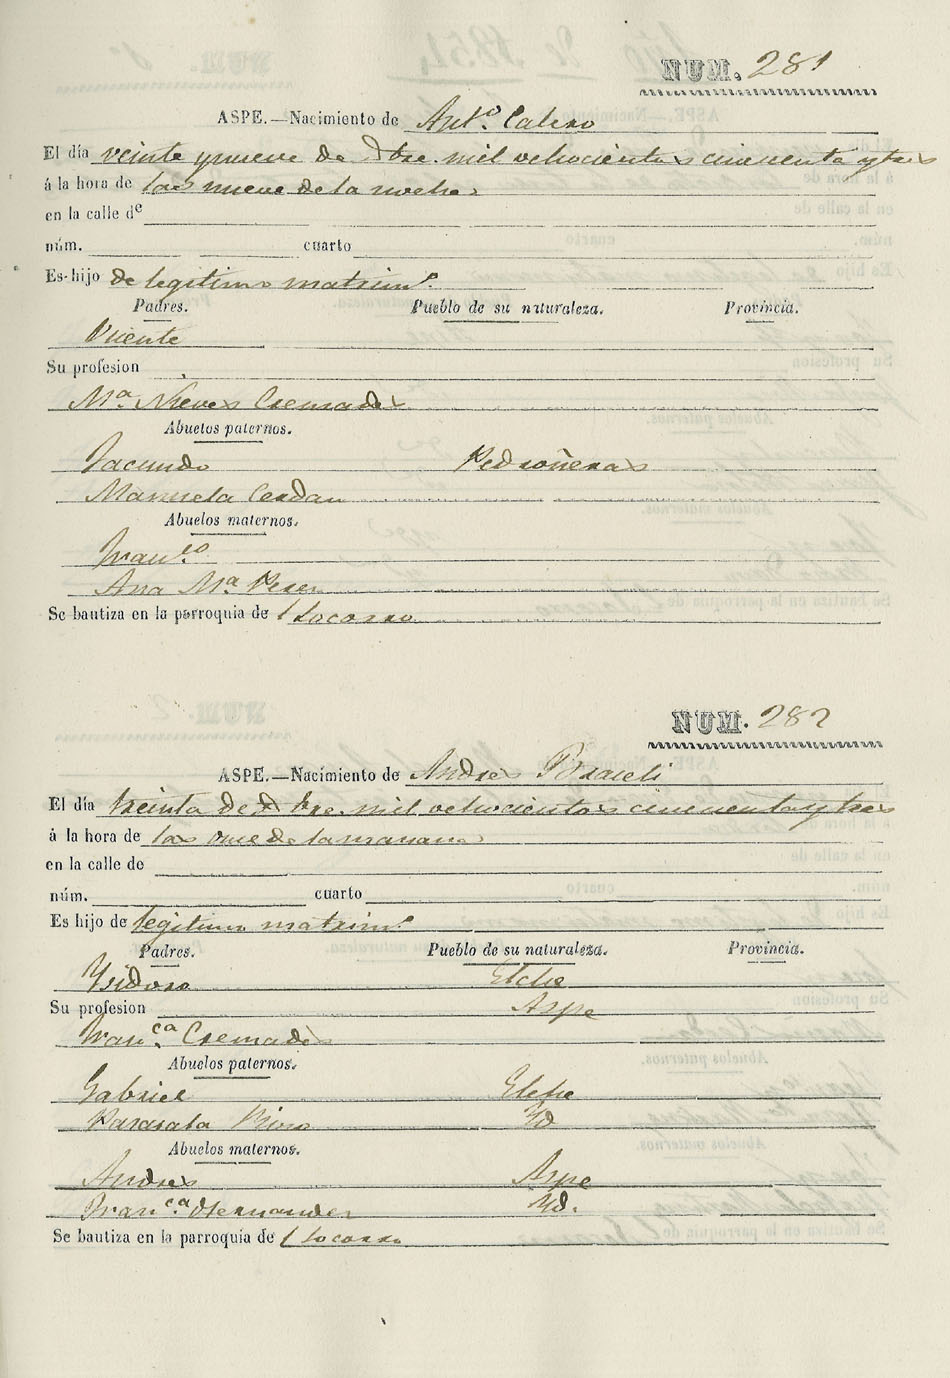 NUM. 281
ASPE.—Nacimiento de Antº. Calero
El día veinte y nueve de Dbre. mil ochocientos cincuenta y tres
á la hora de las nueve de la noche
en la calle de
núm. cuarto
Es hijo de legitimo matrimº.
Padres. Pueblo de su naturaleza. Provincia.
Vicente
Su profesion
Mª. Nieves Cremades
Abuelos paternos.
Facundo Pedroñeras
Manuela Cerdan
Abuelos maternos.
Franco.
Ana Mª Perez
Se bautiza en la parroquia de l Socorro
NUM. 282
ASPE.—Nacimiento de Andres
El día treinta de Dbre. mil ochocientos cincuenta y tres
á la hora de las once de la mañana
en la calle de
núm. cuarto
Es hijo de legitimo matrimº.
Padres. Pueblo de su naturaleza. Provincia.
Ysidoro Elche
Su profesion Aspe
Franca. Cremades
Abuelos paternos.
Gabriel Elche
Yd
Abuelos maternos.
Andres Aspe
Franca. Hernandez Yd.
Se bautiza en la parroquia de l Socorro